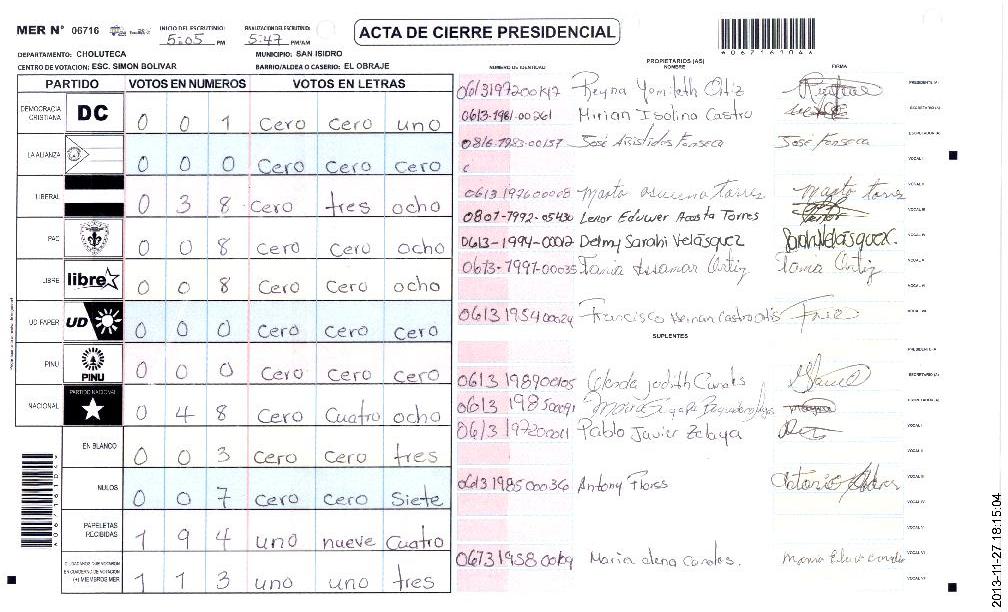 MER N° 06716
INICIO DEL ESCRUTINIO: 5:05 PM
FINALIZACION DEL ESCRUTINIO: 5:47 PM/AM
ACTA DE CIERRE PRESIDENCIAL
DEPARTAMENTO: CHOLUTECA MUNICIPIO: SAN ISIDRO
CENTRO DE VOTACION: ESC. SIMON BOLIVAR BARRIO/ALDEA O CASERIO: EL OBRAJE
PARTIDO VOTOS EN NUMEROS VOTOS EN LETRAS
DEMOCRACIA CRISTIANA DC 0 0 1 Cero Cero uno
LA ALIANZA 0 0 0 Cero Cero Cero
LIBERAL 0 3 8 Cero tres ocho
PAC 0 0 8 Cero Cero ocho
LIBRE libre 0 0 8 Cero Cero ocho
UD FAPER UD 0 0 0 Cero Cero Cero
PINU PINU 0 0 0 Cero Cero Cero
NACIONAL PARTIDO NACIONAL 0 4 8 Cero Cuatro ocho
EN BLANCO 0 0 3 Cero Cero tres
NULOS 0 0 7 Cero Cero Siete
PAPELETAS RECIBIDAS 1 9 4 uno nueve Cuatro
CIUDADANOS QUE VOTARON EN CUADERNO DE VOTACION (+) MIEMBROS MER 1 1 3 uno uno tres
PROPIETARIOS (AS)
NUMERO DE IDENTIDAD NOMBRE FIRMA
Reyna Yamileth Ortiz PRESIDENTE (A)
0613-1981-00261 Mirian Isolina Castro SECRETARIO (A)
0816-1983-00157 José Aristides Fonseca José Fonseca
VOCAL I
0613 1976 00008 Marta Torres Marta torres VOCAL II
0807-1992-05430 Lenor Eduwer Acosta Torres VOCAL III
0613-1994-00012 Delmy Sarahi Velásquez Sarahi Velásquez. VOCAL IV
0613-1997-00035 Tania Ortiz Tania Ortiz VOCAL V
VOCAL VI
0613 1954 00024 Francisco Hernan Castro VOCAL VII
SUPLENTES
PRESIDENTE (A)
Judith Canales SECRETARIO (A)
0613 1985 00091 Maria
Pablo Javier Zelaya VOCAL I
VOCAL II
0613 1985 00036 Antony VOCAL III
VOCAL IV
VOCAL V
Maria elena Canales. VOCAL VI
VOCAL VII
2013-11-27 18:15:04